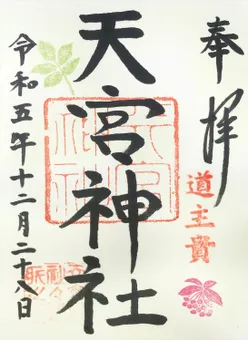 奉拝
道主貴
天宮神社
令和五年十二月二十八日